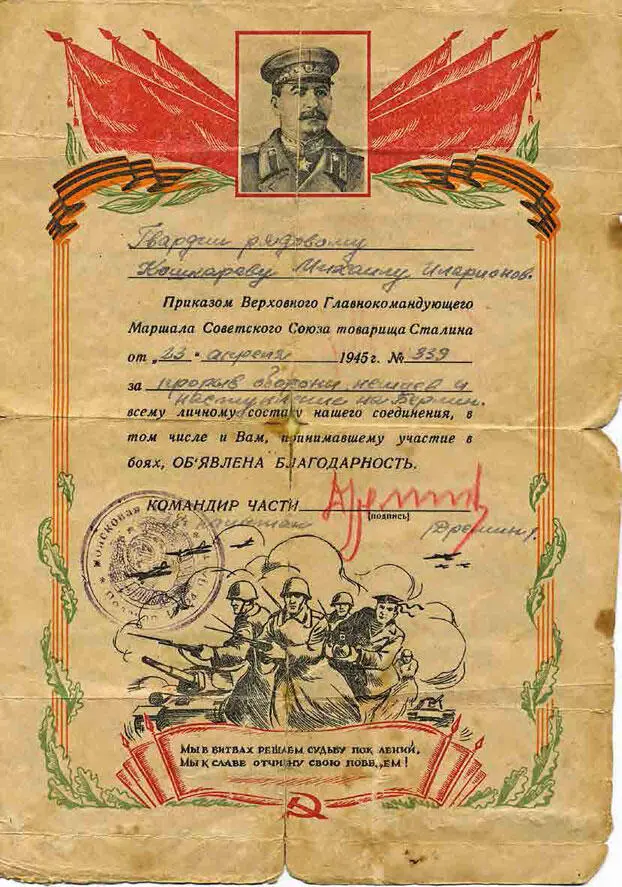 Гвардии рядовому
Кошкареву Михаилу Иларионов.
Приказом Верховного Главнокомандующего
Маршала Советского Союза товарища Сталина
от „23" апреля 1945 г. № 339
за прорыв обороны немцев и
наступление на Берлин.
всему личному составу нашего соединения, в
том числе и Вам, принимавшему участие в
боях, ОБ'ЯВЛЕНА БЛАГОДАРНОСТЬ.
КОМАНДИР ЧАСТИ
(подпись)
гв. капитан (Дремин).
войсковая
МЫ В БИТВАХ РЕШАЕМ СУДЬБУ ПОКОЛЕНИЙ,
МЫ К СЛАВЕ ОТЧИЗНУ СВОЮ ПОВЕДЕМ!